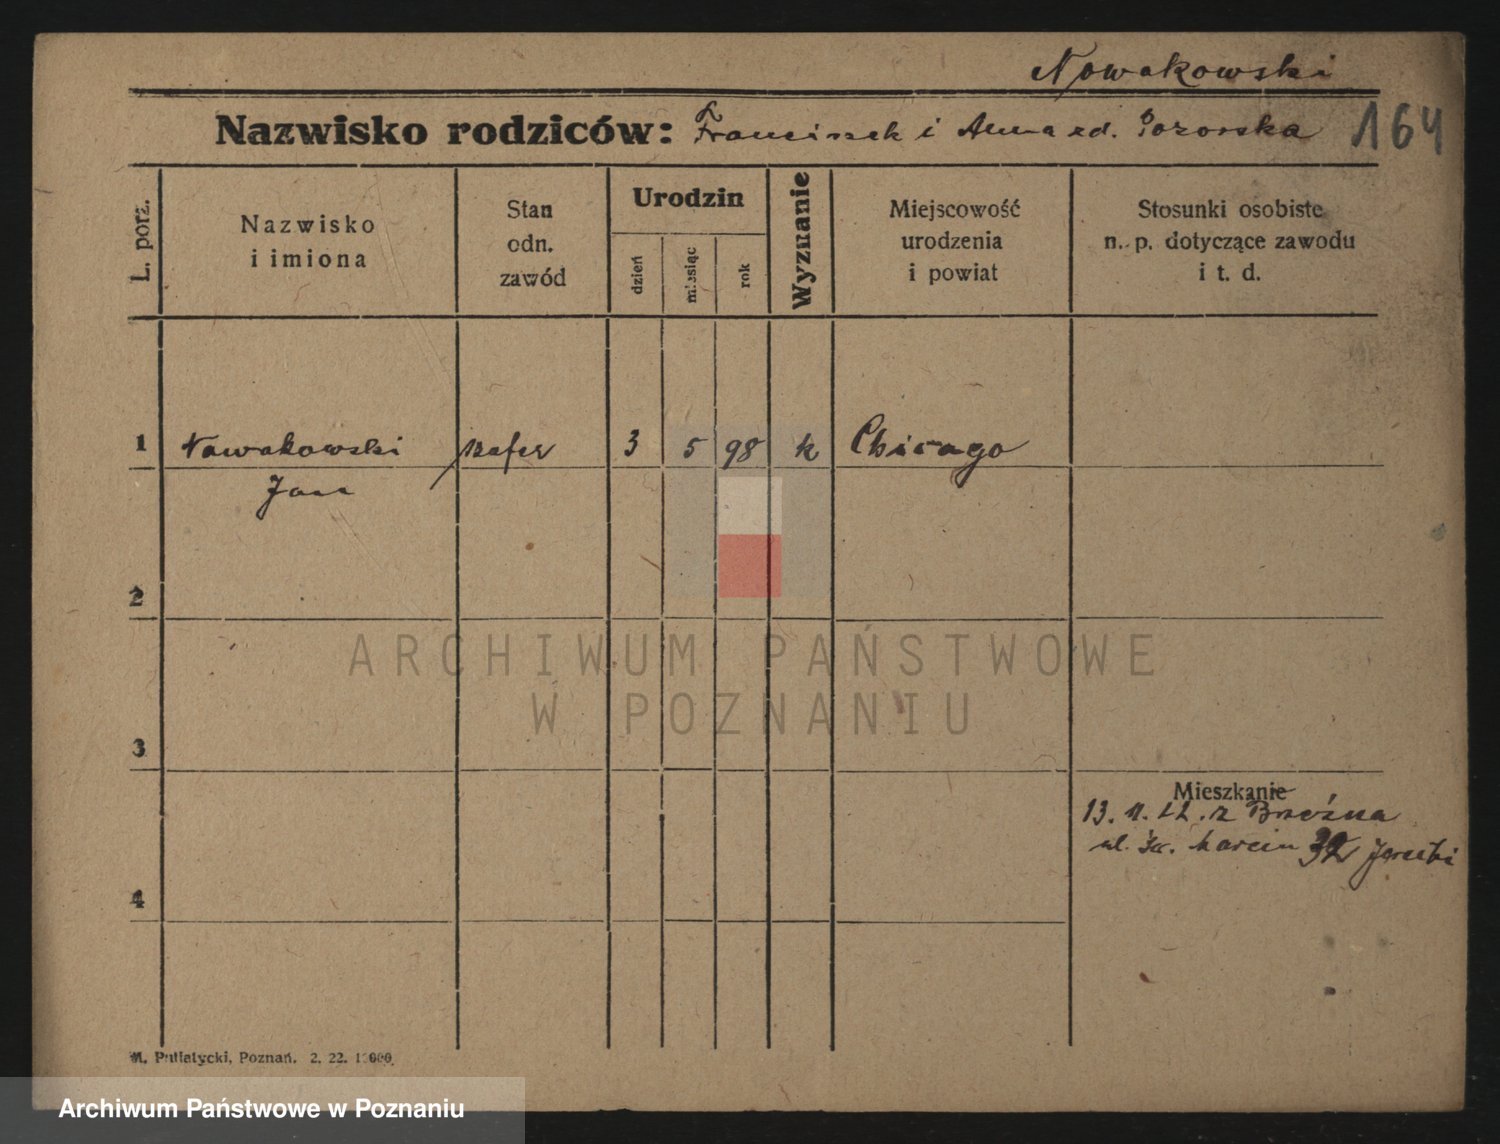 Nowakowski
Nazwisko rodziców: Franciszek i Anna zd.
164
L. porz.
Nazwisko
i imiona
Stan
odn.
zawód
Urodzin
dzień
miesiąc
rok
Wyznanie
Miejscowość
urodzenia
i powiat
Stosunki osobiste
n. p. dotyczące zawodu
i t. d.
1 Nowakowski szofer 3 5 98 k Chicago
Jan
2
3
4
Mieszkanie
13. 11. 22. z
ul. Św. Marcin 32
ARCHIWUM PAŃSTWOWE
W POZNANIU
M. Putiatycki, Poznań. 2. 22.
Archiwum Państwowe w Poznaniu